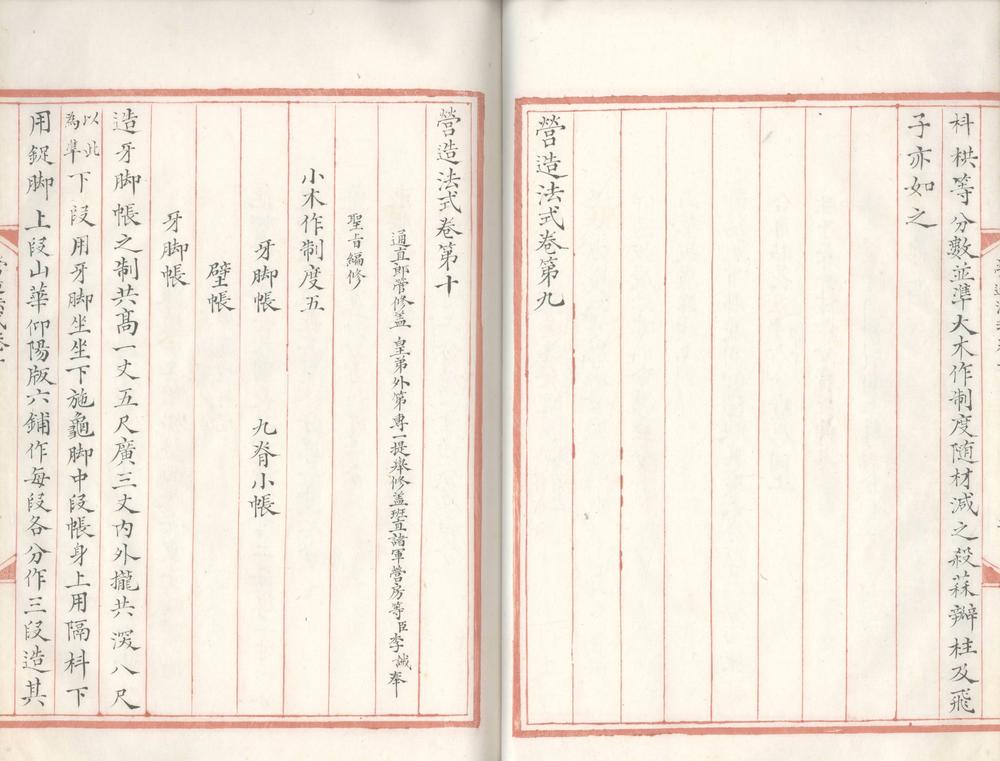 枓栱等分數並準大木作制度随材減之殺蒜瓣柱及飛
子亦如之
營造法式卷第九
營造法式卷第十
通直郎管修蓋 皇弟外第專一提舉修蓋班直諸軍營房等臣李誡奉
聖旨編修
小木作制度五
牙脚帳 九脊小帳
壁帳
牙脚帳
造牙脚帳之制共髙一丈五尺廣三丈内外攏共深八尺
以此
為準下段用牙脚坐坐下施龜脚中段帳身上用隔枓下
用鋜脚上段山華仰陽版六鋪作每段各分作三段造其